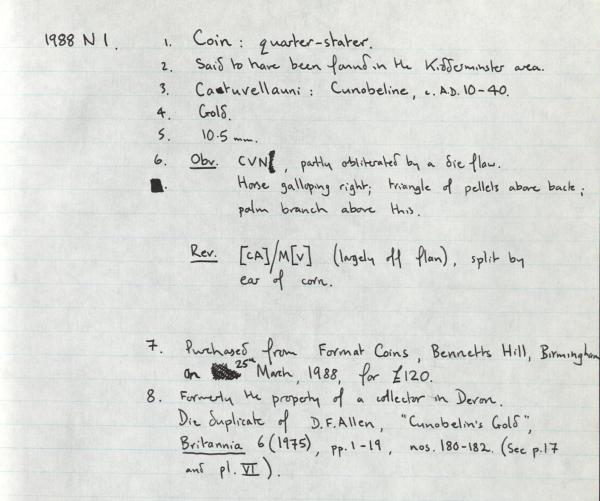 1988 N 1. 1. Coin: quarter-stater.
2. Said to have been found in the Kidderminster area.
3. Catuvellauni: Cunobeline, c. A.D. 10-40.
4. Gold.
5. 10.5 mm.
6. Obv. CVN, partly obliterated by a die flaw.
Horse galloping right; triangle of pellets above back;
palm branch above this.
Rev. [CA]/M[V] (largely off flan), split by
ear of corn.
7. Purchased from Format Coins, Bennetts Hill, Birmingham
on 25th March, 1988, for £120.
8. Formerly the property of a collector in Devon.
Die duplicate of D.F. Allen, "Cunobelin's Gold",
Britannia 6 (1975), pp. 1-19, nos. 180-182. (See p.17
and pl. VI).